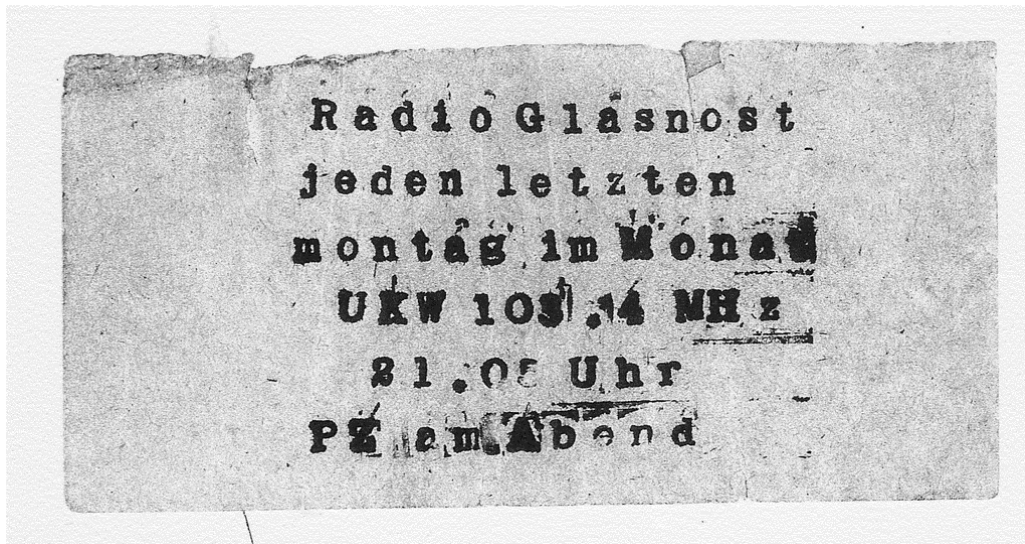 Radio Glasnost
jeden letzten
montag im Monat
UKW 103.4 MHz
Uhr
am Abend